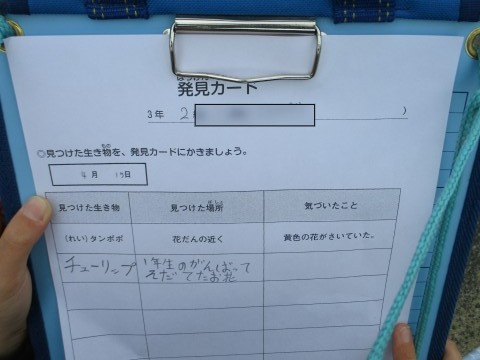 はっけん
発見カード
3年 2 )
◎見つけた生き物を、発見カードにかきましょう。
4月 17日
見つけた生き物 見つけた場所 気づいたこと
(れい)タンポポ 花だんの近く 黄色の花がさいていた。
チューリップ 1年生のがんばって
そだてたお花